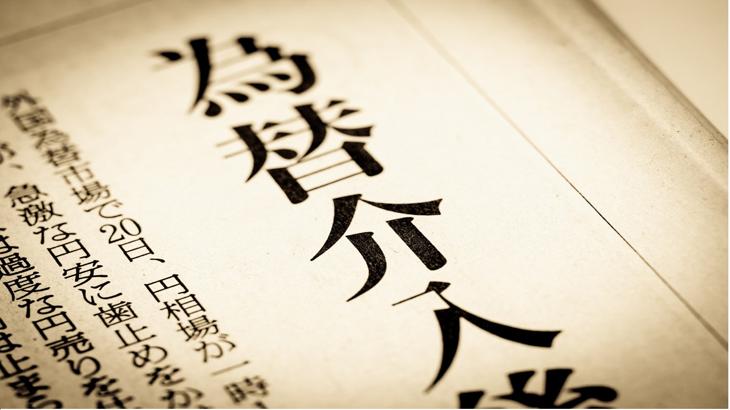 為替介入後
外国為替市場で20日、円相場が一時
、急激な円安に歯止めをか
は過度な円売りを仕
は止まら